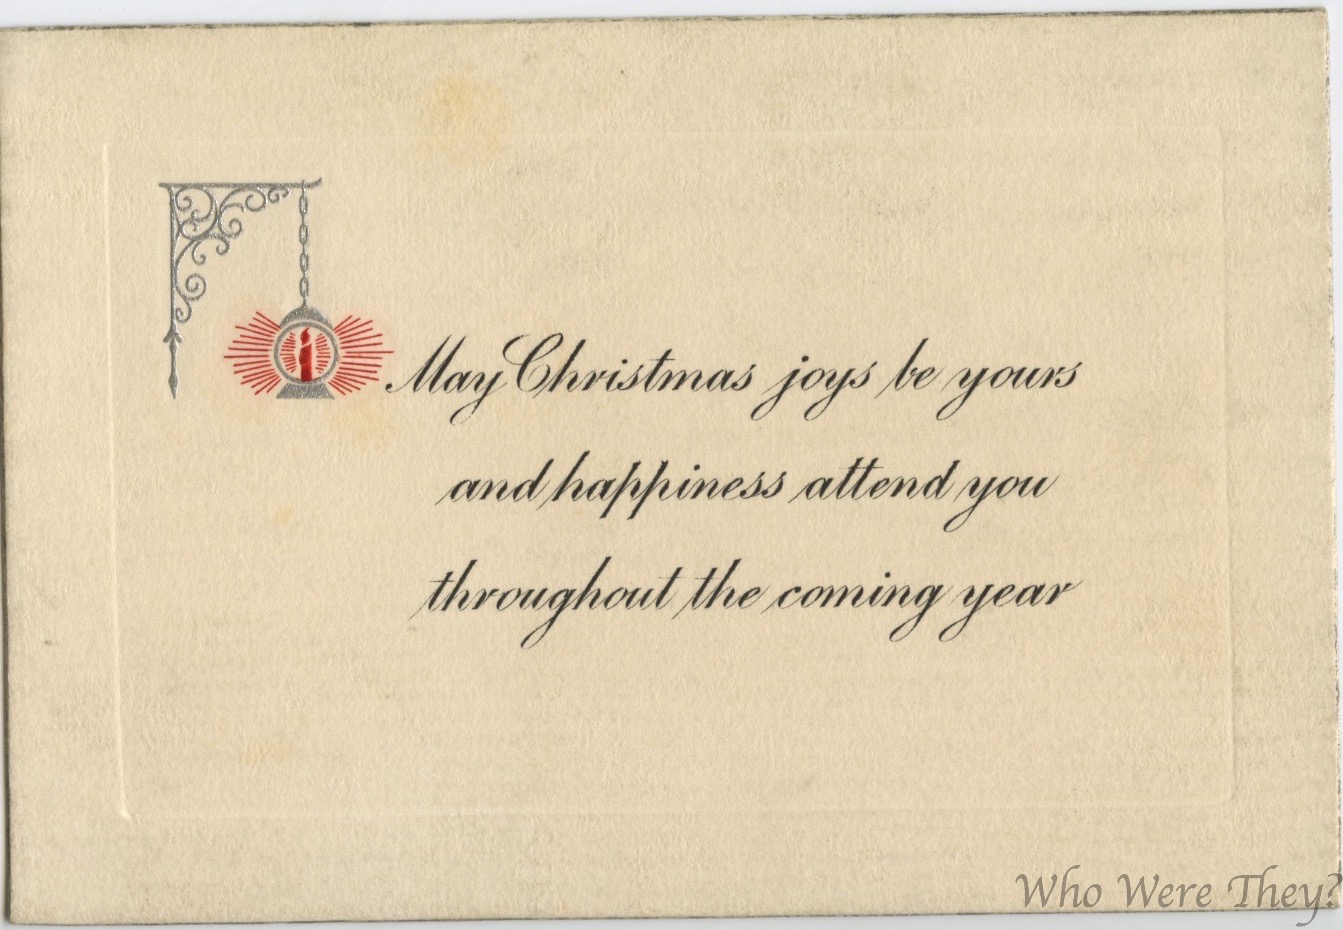 May Christmas joys be yours
and happiness attend you
throughout the coming year
Who Were They?